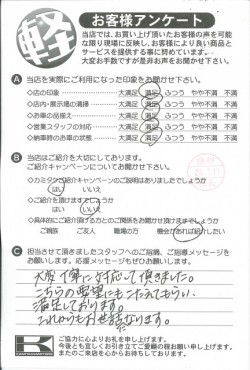 軽
お客様アンケート
当店では、お買い上げ頂いたお客様の声を可能
な限り現場に反映し、お客様により良い商品と
サービスを提供する事に努めています。
大変お手数ですが是非お声をお聞かせ下さい。
A 当店を実際にご利用になった印象をお聞かせ下さい。
◇店の印象 大満足 満足 ふつう やや不満 不満
◇店内・展示場の清掃 大満足 満足 ふつう やや不満 不満
◇お車の品揃え 大満足 満足 ふつう やや不満 不満
◇営業スタッフの対応 大満足 満足 ふつう やや不満 不満
◇納車時のお車の状態 大満足 満足 ふつう やや不満 不満
B 当店はご紹介を大切にしております。
ご紹介キャンペーンについてお聞かせ下さい。
◇カミタケご紹介キャンペーンのご説明はありましたでしょうか
はい いいえ
◇ご紹介を頂けますでしょうか
はい いいえ
◇具体的にご紹介頂ける方とのご関係をお聞かせ頂けますでしょうか
ご親族 ご友人 職場の方 機会があれば紹介したい
C 担当させて頂きましたスタッフへのご指摘、ご指導メッセージを
お願いします。応援メッセージもぜひお願いします。
大変丁寧に対応して頂きました。
こちらの要望にもこたえてもらい、
満足しております。
これからもお世話になります。
K
ご協力に心よりお礼を申し上げます。
今後とも宜しくお引き立てご愛顧の程お願い申し上げます。
またのご来店を心からお待ちしております。